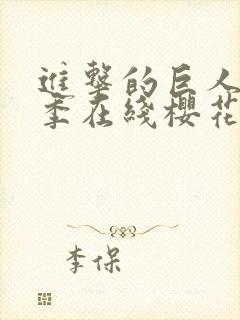 進擊的巨人
季在綫櫻花
李保